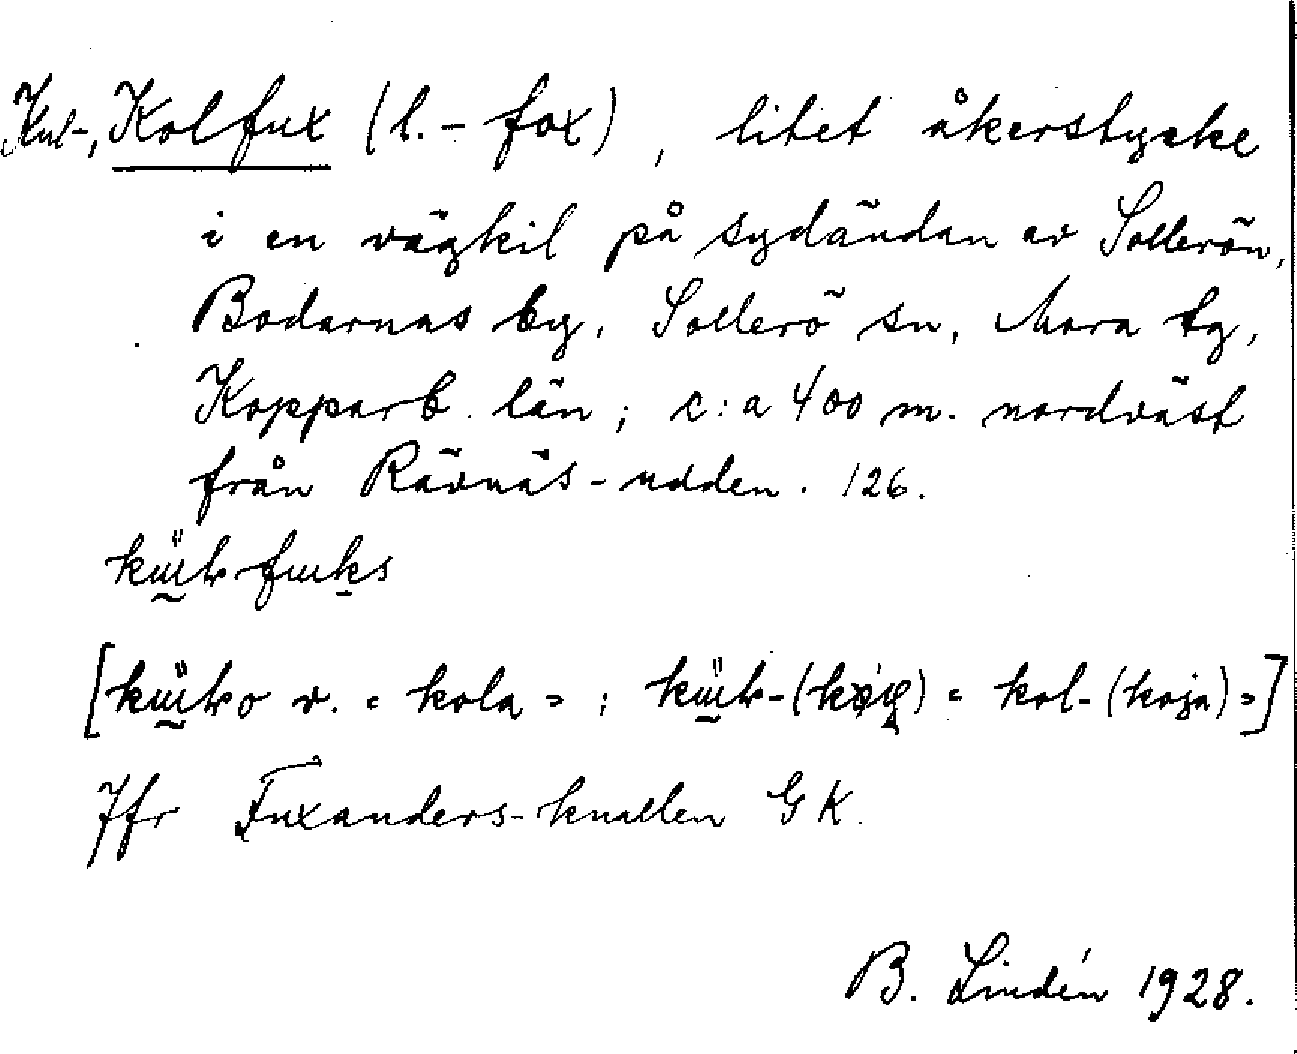 Kul-, Kolfux (l. -fox), litet åkerstycke
i en vägkil på sydändan av Sollerön,
Bodarnas by, Sollerö sn, Mora tg,
Kopparb. län; c:a 400 m. nordväst
från Rävnäs-udden. 126.
v. "kola"; "kol-(koja)"]
Jfr Fuxanders-knallen GK.
B. Lindén 1928.